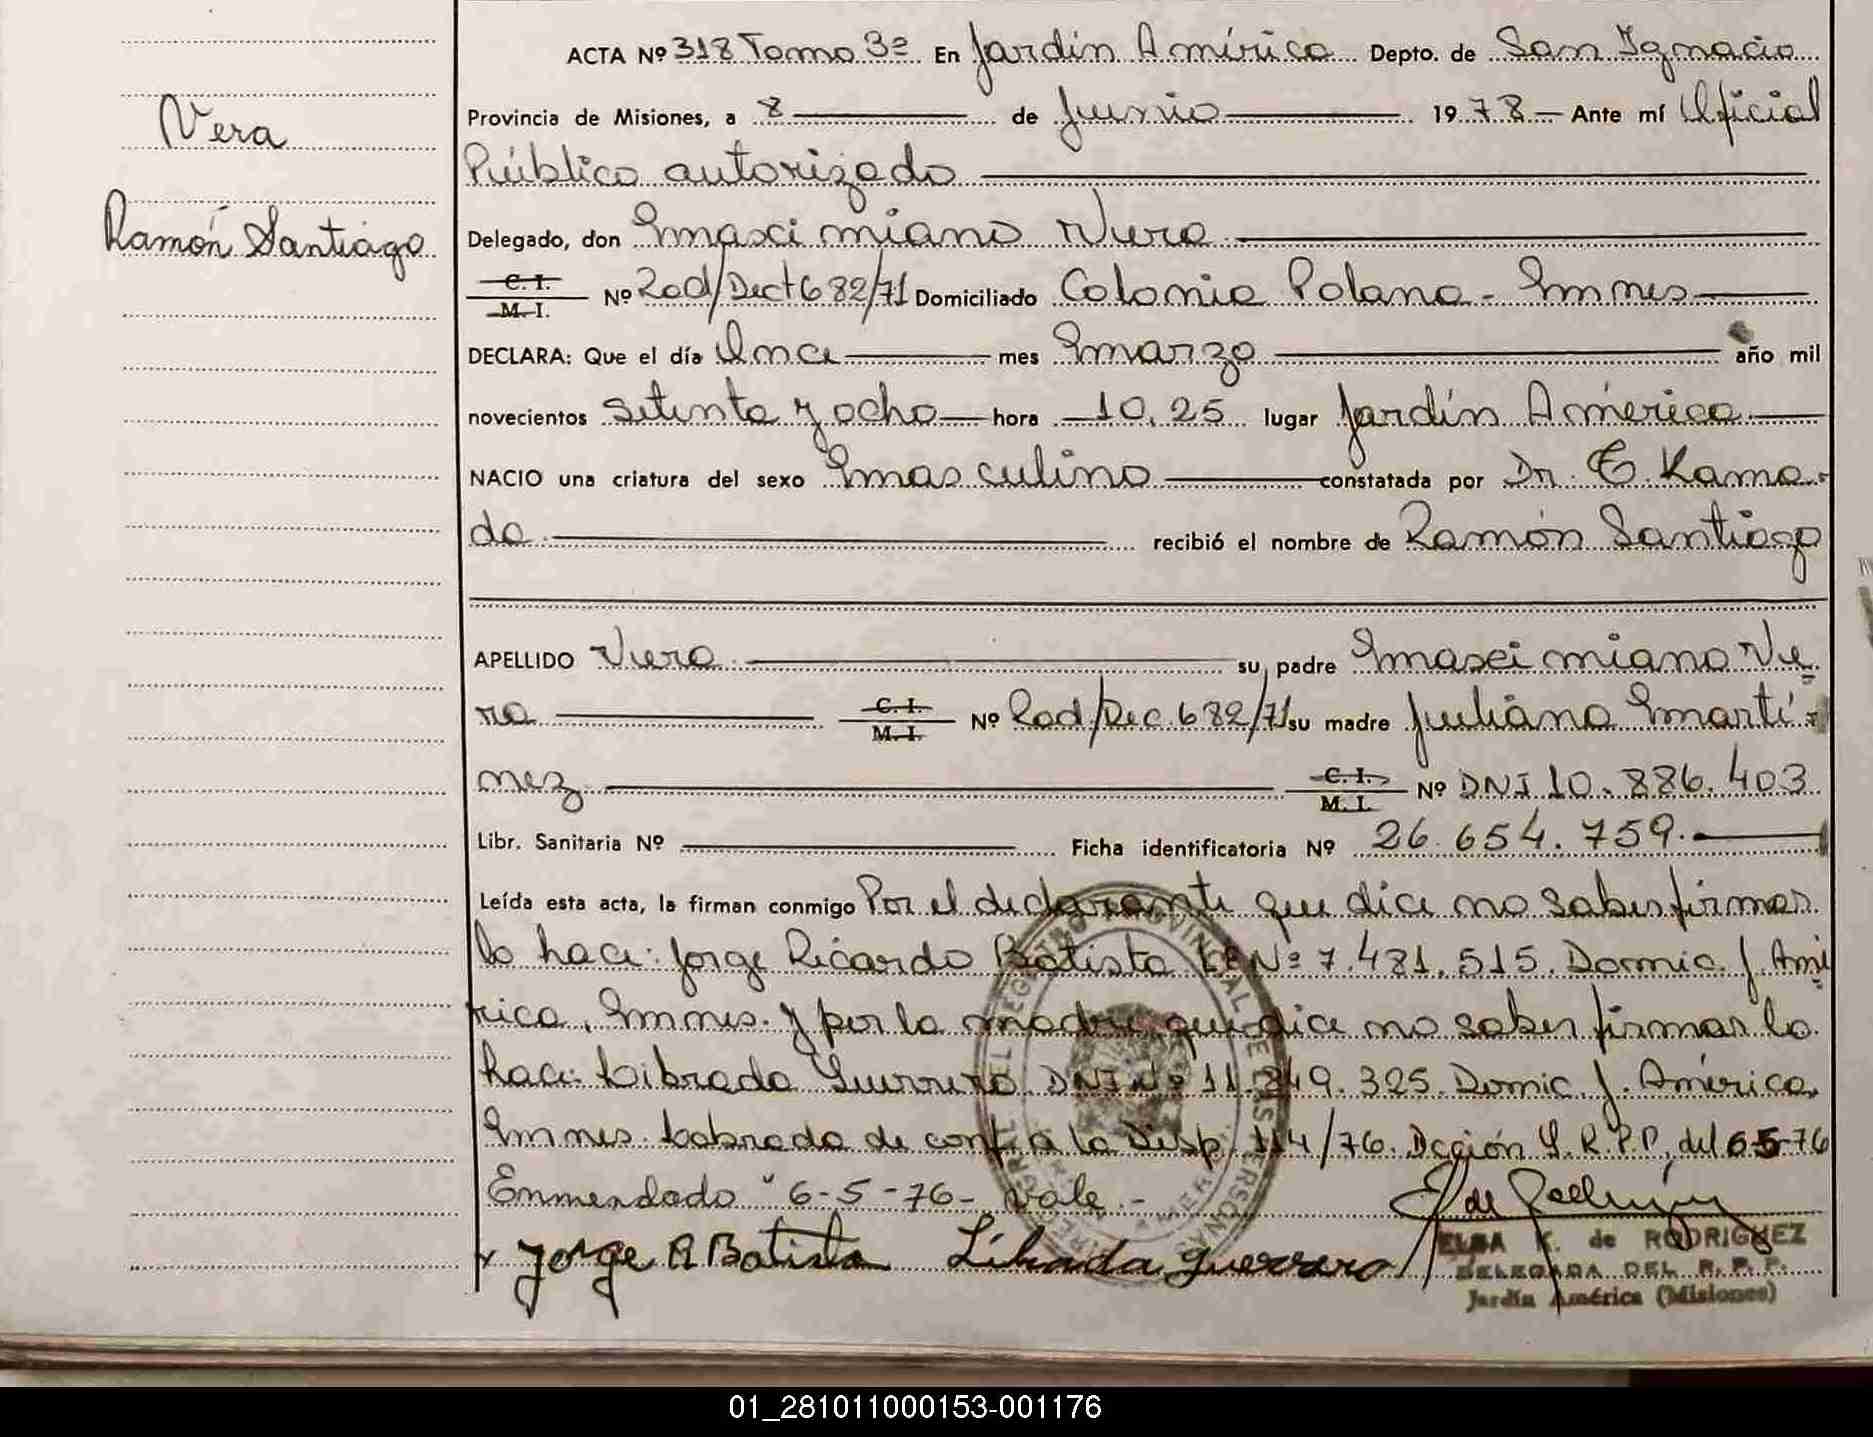 ACTA Nº 318 Tomo 3º En Jardín América Depto. de San Ignacio
Provincia de Misiones, a 8 de Junio 1978 Ante mí Oficial
Público autorizado
Vera
Ramón Santiago
Delegado, don Maximiano Vera
C. I. M. I. Nº Rad/Dect 682/71 Domiciliado Colonia Polana - Mnes
DECLARA: Que el día Once mes Marzo año mil
novecientos setenta y ocho hora 10.25 lugar Jardín América
NACIO una criatura del sexo Masculino constatada por Dr. E. Kama-
da recibió el nombre de Ramón Santiago
APELLIDO Vera su padre Maximiano Ve-
ra C. I. M. I. Nº Rad/Dec. 682/71 su madre Juliana Martí-
nez C. I. M. I. Nº DNI 10.886.403
Libr. Sanitaria Nº Ficha identificatoria Nº 26.654.759.
Leída esta acta, la firman conmigo Por el declarante que dice no saber firmar
lo hace: Jorge Ricardo Batista LE Nº 7.481.515. Domic. J. Amé
rica, Mnes. y por la madre que dice no saber firmar lo
hace: Librada Guerrero DNI Nº 11.849.325. Domic. J. América,
Mnes. Labrada de conf. a la Disp. 114/76. Dcción G.R.P.P. del 6-5-76
Enmendado "6-5-76- vale.-
Jorge R Batista Librada Guerrero
ELSA K. de RODRIGUEZ
DELEGADA DEL R. P. P.
Jardín América (Misiones)
01_281011000153-001176